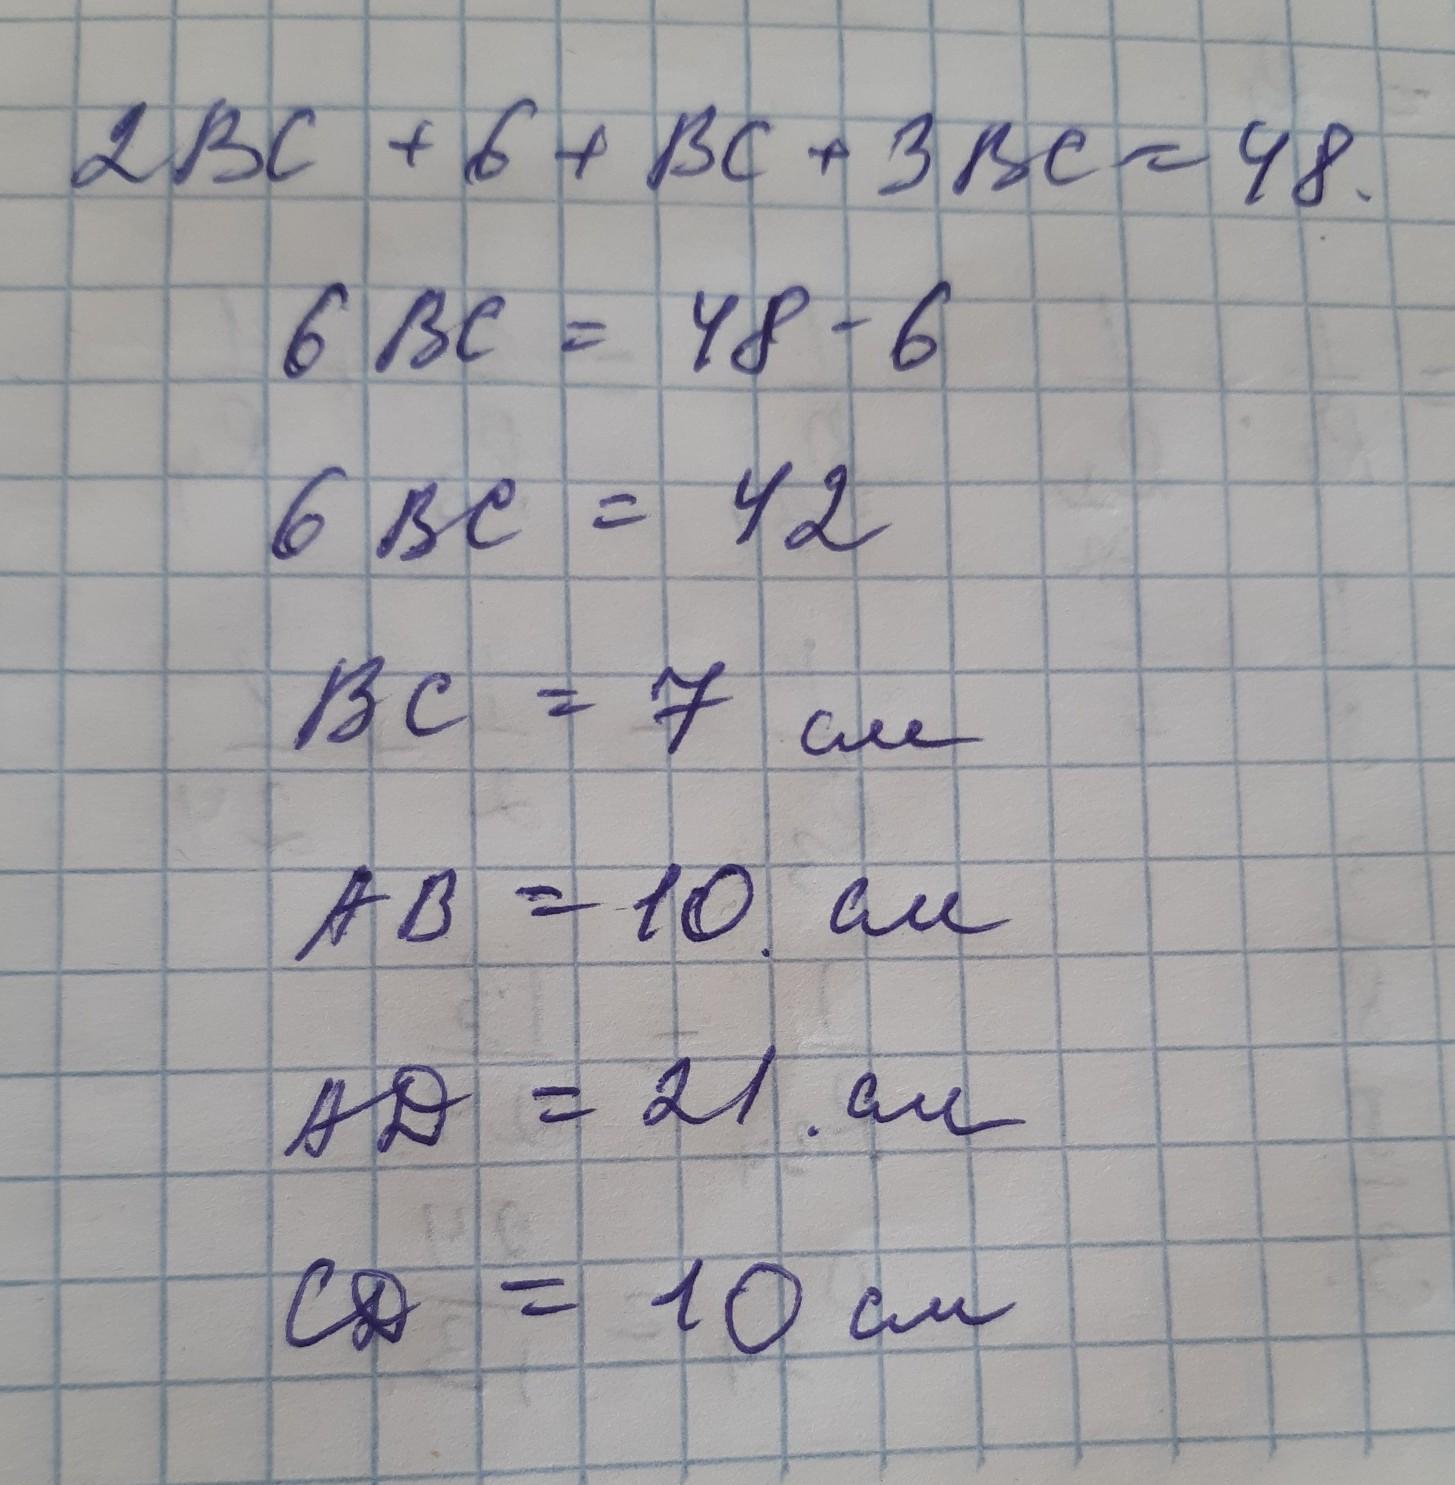 2BC + 6 + BC + 3BC = 48.
6 BC = 48 - 6
6 BC = 42
BC = 7 см
AB = 10. см
AD = 21. см
CD = 10 см